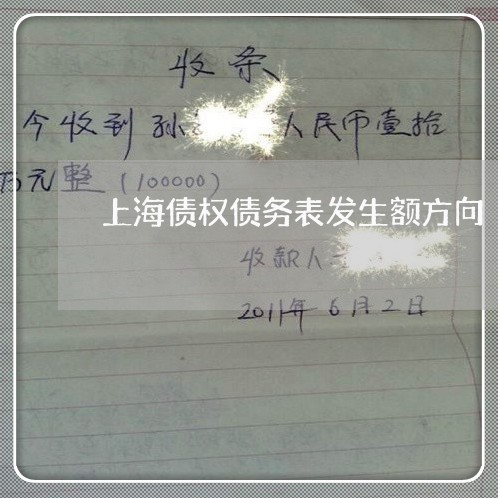 收条
今收到孙 人民币壹拾
万元整（100000）
上海债权债务表发生额方向
收款人
2011年6月2日